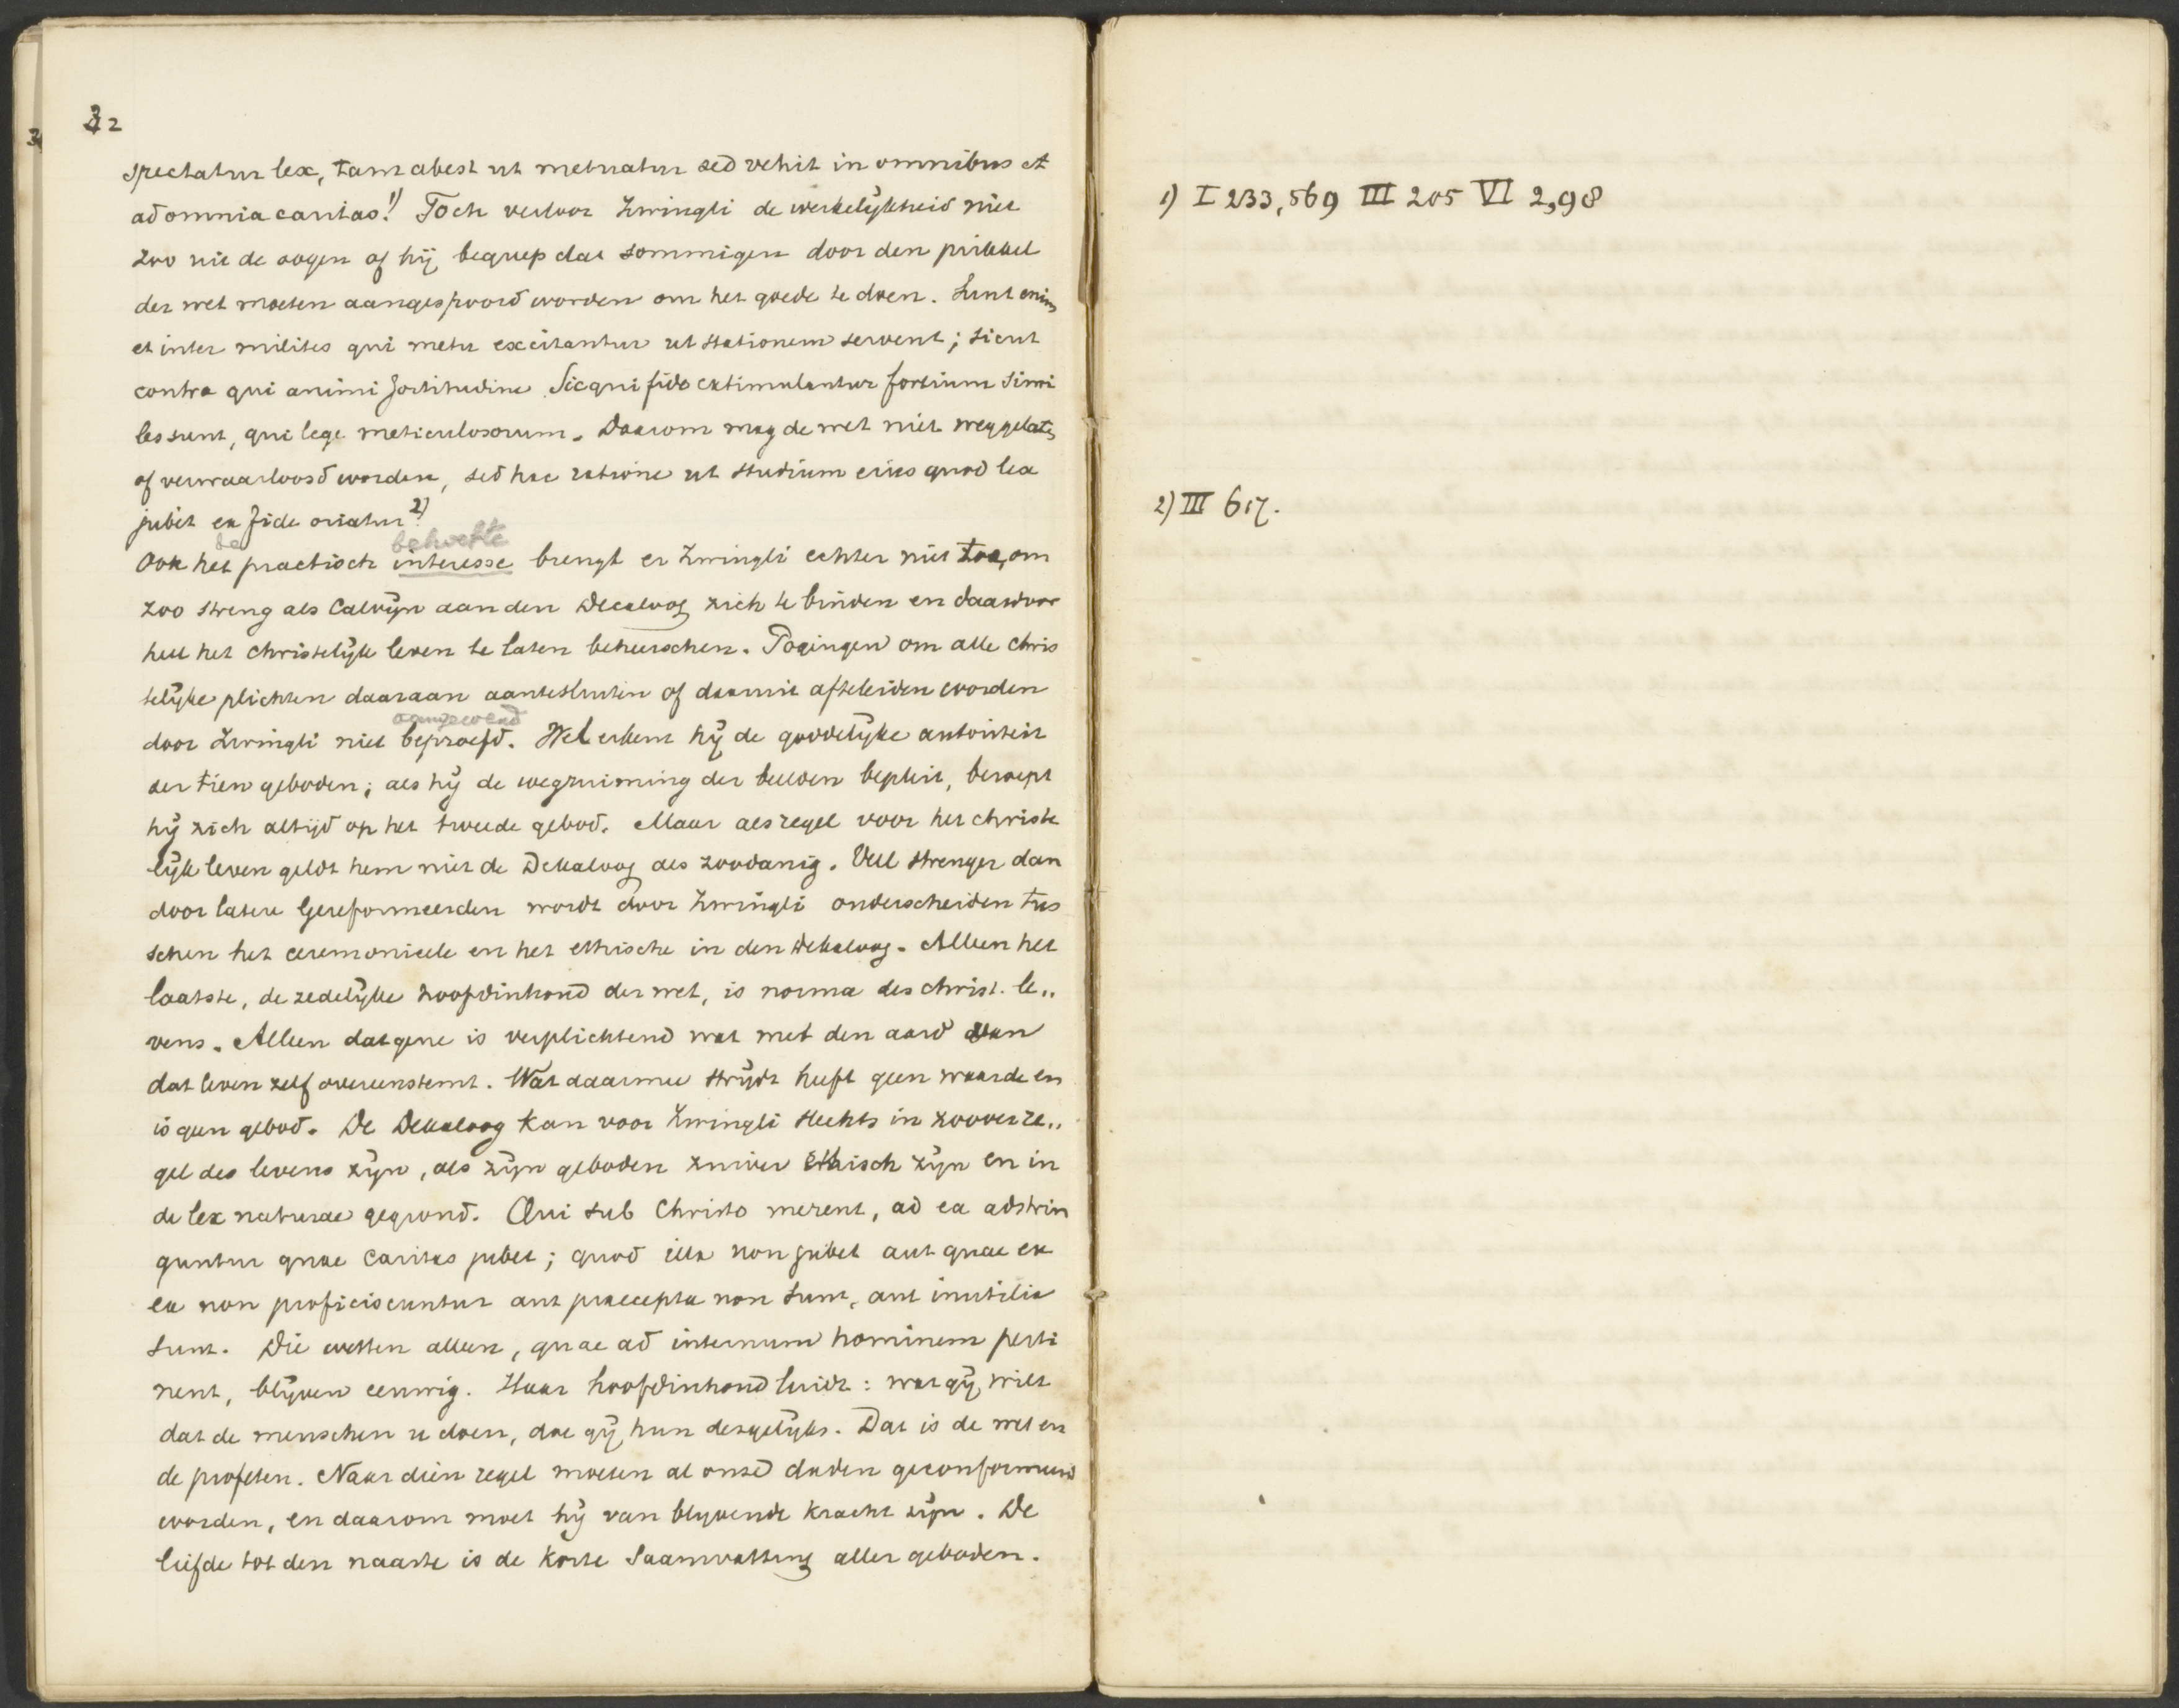 32
spectatur lex, tam abest ut metuatur sed vehit in omnibus et
ad omnia caritas. 1) Toch verloor Zwingli de werkelijkheid niet
zoo uit de oogen of hij begreep dat sommigen door den prikkel
der wet moeten aangespoord worden om het goede te doen. Sunt enim
et inter milites qui metu excitantur ut stationem servent; sicut
contra qui animi fortitudine. Sic qui fide extimulantur fortium simi
les sunt, qui lege meticulosorum. Daarom mag de wet niet weggelaten
of verwaarloosd worden, sed hac ratione ut studium eius quod lex
jubet ex fide oriatur. 2)
de behoefte
Ook het practisch interesse brengt er Zwingli echter niet toe, om
zoo streng als Calvijn aan den Decaloog zich te binden en daardoor
heel het christelijk leven te laten beheerschen. Pogingen om alle chris
telijke plichten daaraan aantesluiten of daaruit afteleiden worden
aangewend
door Zwingli niet beproefd. Wel erkent hij de goddelijke autoriteit
der tien geboden; als hij de wegruiming der beelden bepleit, beroept
hij zich altijd op het tweede gebod. Maar als regel voor het christe
lijk leven geldt hem niet de Dekaloog als zoodanig. Veel strenger dan
door latere Gereformeerden wordt door Zwingli onderscheiden tus
schen het ceremonieele en het ethische in den Dekaloog. Alleen het
laatste, de zedelijke hoofdinhoud der wet, is norma des christ. le„
vens. Alleen datgene is verplichtend wat met den aard van
dat leven zelf overeenstemt. Wat daarmee strijdt heeft geen waarde en
is geen gebod. De Dekaloog kan voor Zwingli slechts in zoover re„
gel des levens zijn, als zijn geboden zuiver ethisch zijn en in
de lex naturae gegrond. Qui sub Christo merent, ad ea adstrin
guntur quae caritas jubet; quod illa non jubet aut quae ex
ea non proficiscuntur aut praecepta non sunt, aut inutilia
sunt. Die wetten alleen, quae ad internum hominem perti
nent, blijven eeuwig. Haar hoofdinhoud luidt: wat gij wilt
dat de menschen u doen, doe gij hun desgelijks. Dat is de wet en
de profeten. Naar dien regel moeten al onze daden geconformeerd
worden, en daarom moet hij van blijvende kracht zijn. De
liefde tot den naaste is de korte saamvatting aller geboden.
1) I 233, 569 III 205 VI 2, 98
2) III 617.